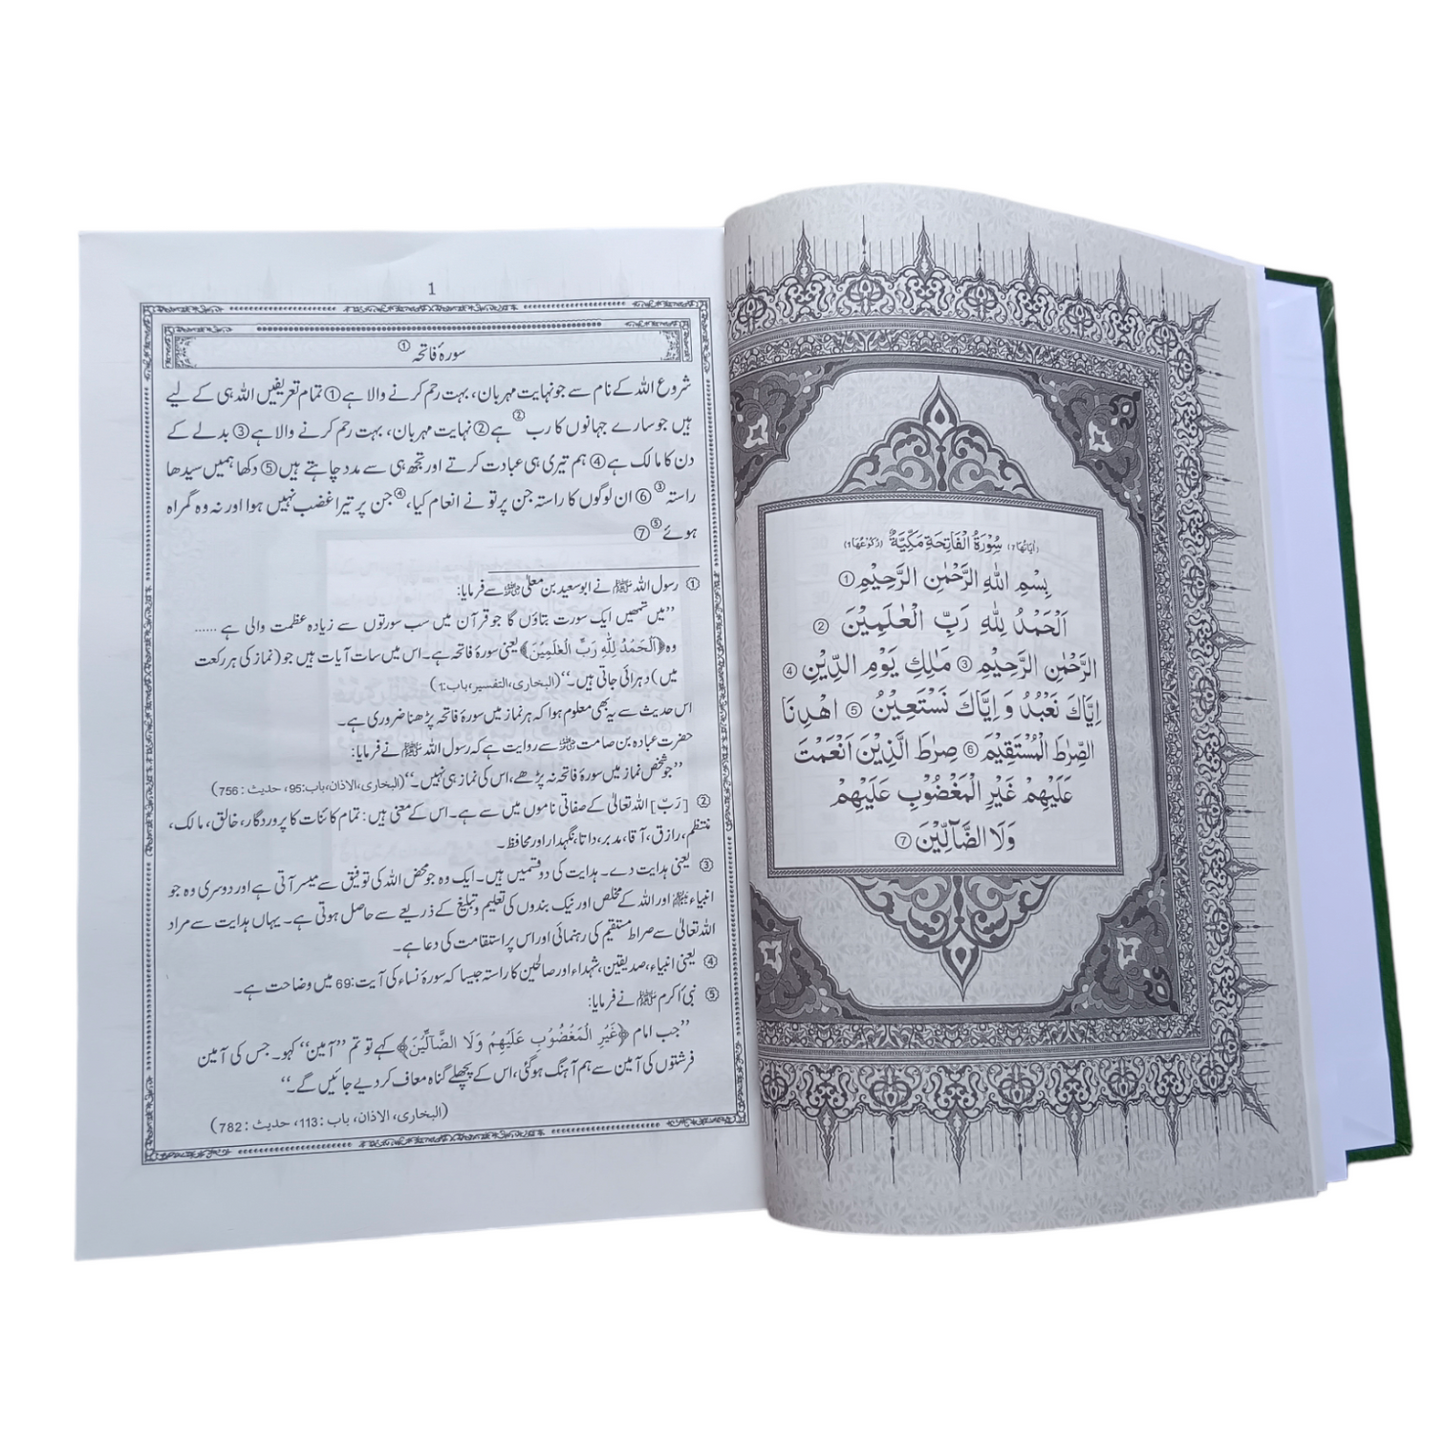 سُوْرَةُ الْفَاتِحَةِ مَكِّيَّةٌ
بِسْمِ اللّٰهِ الرَّحْمٰنِ الرَّحِيْمِ ①
اَلْحَمْدُ لِلّٰهِ رَبِّ الْعٰلَمِيْنَ ②
الرَّحْمٰنِ الرَّحِيْمِ ③ مٰلِكِ يَوْمِ الدِّيْنِ ④
اِيَّاكَ نَعْبُدُ وَ اِيَّاكَ نَسْتَعِيْنُ ⑤ اهْدِنَا
الصِّرَاطَ الْمُسْتَقِيْمَ ⑥ صِرَاطَ الَّذِيْنَ اَنْعَمْتَ
عَلَيْهِمْ غَيْرِ الْمَغْضُوْبِ عَلَيْهِمْ
وَلَا الضَّآلِّيْنَ ⑦
1
سورۂ فاتحہ ①
شروع اللہ کے نام سے جو نہایت مہربان، بہت رحم کرنے والا ہے ① تمام تعریفیں اللہ ہی کے لیے
ہیں جو سارے جہانوں کا رب ② ہے ② نہایت مہربان، بہت رحم کرنے والا ہے ③ بدلے کے
دن کا مالک ہے ④ ہم تیری ہی عبادت کرتے اور تجھ ہی سے مدد چاہتے ہیں ⑤ دکھا ہمیں سیدھا
راستہ ③ ⑥ ان لوگوں کا راستہ جن پر تو نے انعام کیا، ④ جن پر تیرا غضب نہیں ہوا اور نہ وہ گمراہ
ہوئے ⑤ ⑦
① رسول اللہ ﷺ نے ابوسعید بن معلیٰ سے فرمایا:
’’میں تمھیں ایک سورت بتاؤں گا جو قرآن میں سب سورتوں سے زیادہ عظمت والی ہے ......
وہ ﴿اَلْحَمْدُ لِلّٰهِ رَبِّ الْعٰلَمِيْنَ﴾ یعنی سورۂ فاتحہ ہے۔ اس میں سات آیات ہیں جو (نماز کی ہر رکعت
میں) دہرائی جاتی ہیں۔‘‘ (البخاری، التفسیر، باب:1)
اس حدیث سے یہ بھی معلوم ہوا کہ ہر نماز میں سورۂ فاتحہ پڑھنا ضروری ہے۔
حضرت عبادہ بن صامت سے روایت ہے کہ رسول اللہ ﷺ نے فرمایا:
’’جو شخص نماز میں سورۂ فاتحہ نہ پڑھے، اس کی نماز ہی نہیں۔‘‘ (البخاری، الاذان، باب:95، حدیث:756)
② [رَبّ] اللہ تعالیٰ کے صفاتی ناموں میں سے ہے۔ اس کے معنی ہیں: تمام کائنات کا پروردگار، خالق، مالک،
منتظم، رازق، آقا، مدبر، داتا، نگہدار اور محافظ۔
③ یعنی ہدایت دے۔ ہدایت کی دو قسمیں ہیں۔ ایک وہ جو محض اللہ کی توفیق سے میسر آتی ہے اور دوسری وہ جو
انبیاء اور اللہ کے مخلص اور نیک بندوں کی تعلیم و تبلیغ کے ذریعے سے حاصل ہوتی ہے۔ یہاں ہدایت سے مراد
اللہ تعالیٰ سے صراط مستقیم کی رہنمائی اور اس پر استقامت کی دعا ہے۔
④ یعنی انبیاء، صدیقین، شہداء اور صالحین کا راستہ جیسا کہ سورۂ نساء کی آیت:69 میں وضاحت ہے۔
⑤ نبی اکرم ﷺ نے فرمایا:
’’جب امام ﴿غَيْرِ الْمَغْضُوْبِ عَلَيْهِمْ وَلَا الضَّآلِّيْنَ﴾ کہے تو تم ’’آمین‘‘ کہو۔ جس کی آمین
فرشتوں کی آمین سے ہم آہنگ ہو گئی، اس کے پچھلے گناہ معاف کر دیے جائیں گے۔‘‘
(البخاری، الاذان، باب:113، حدیث:782)